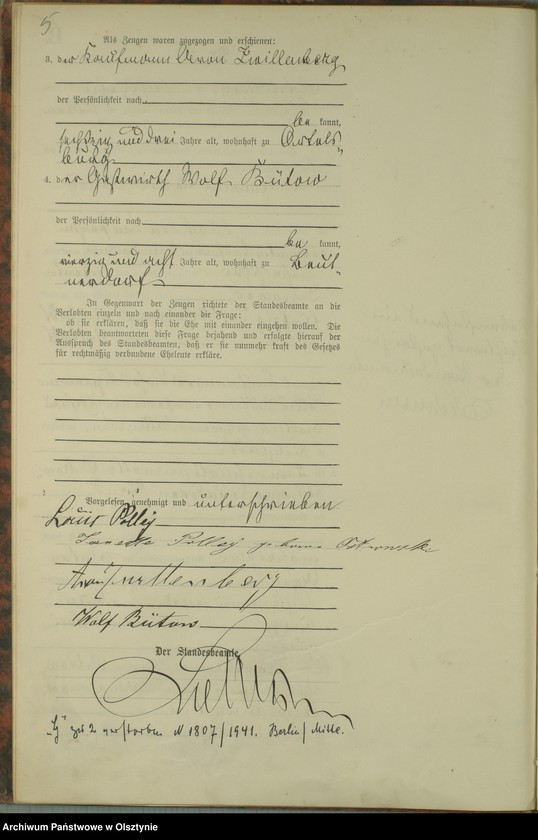 5
Als Zeugen waren zugezogen und erschienen:
3. der Kaufmann Aron Zwillenberg
der Persönlichkeit nach
be kannt,
sechszig und drei Jahre alt, wohnhaft zu Ortels-
burg
4. der Gastwirth Wolf Bütow
der Persönlichkeit nach
be kannt,
vierzig und acht Jahre alt, wohnhaft zu Beut-
nerdorf
In Gegenwart der Zeugen richtete der Standesbeamte an die
Verlobten einzeln und nach einander die Frage:
ob sie erklären, daß sie die Ehe mit einander eingehen wollen. Die
Verlobten beantworteten diese Frage bejahend und erfolgte hierauf der
Ausspruch des Standesbeamten, daß er sie nunmehr kraft des Gesetzes
für rechtmäßig verbundene Eheleute erkläre.
Vorgelesen, genehmigt und unterschrieben
Louis Pollej
Pollej geborene
Aron Zwillenberg
Wolf Bütow
Der Standesbeamte.
zu 2 verstorben N 1807/1941. Berlin/Mitte.
Archiwum Państwowe w Olsztynie